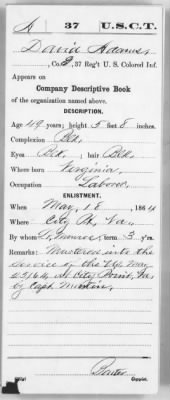 A 37 U.S.C.T.
David Adams,
, Co. , 37 Reg't U. S. Colored Inf.
Appears on
Company Descriptive Book
of the organization named above.
DESCRIPTION.
Age 49 years; height 5 feet 8 inches.
Complexion Blk.
Eyes Blk.; hair Blk.
Where born Virginia,
Occupation Laborer
ENLISTMENT.
When May 18, 1864
Where City Pt. Va.
By whom ; term 3 y'rs.
Remarks: Mustered into the
service of the U.S. May
at City Point, Va
by Capt.
Copyist.